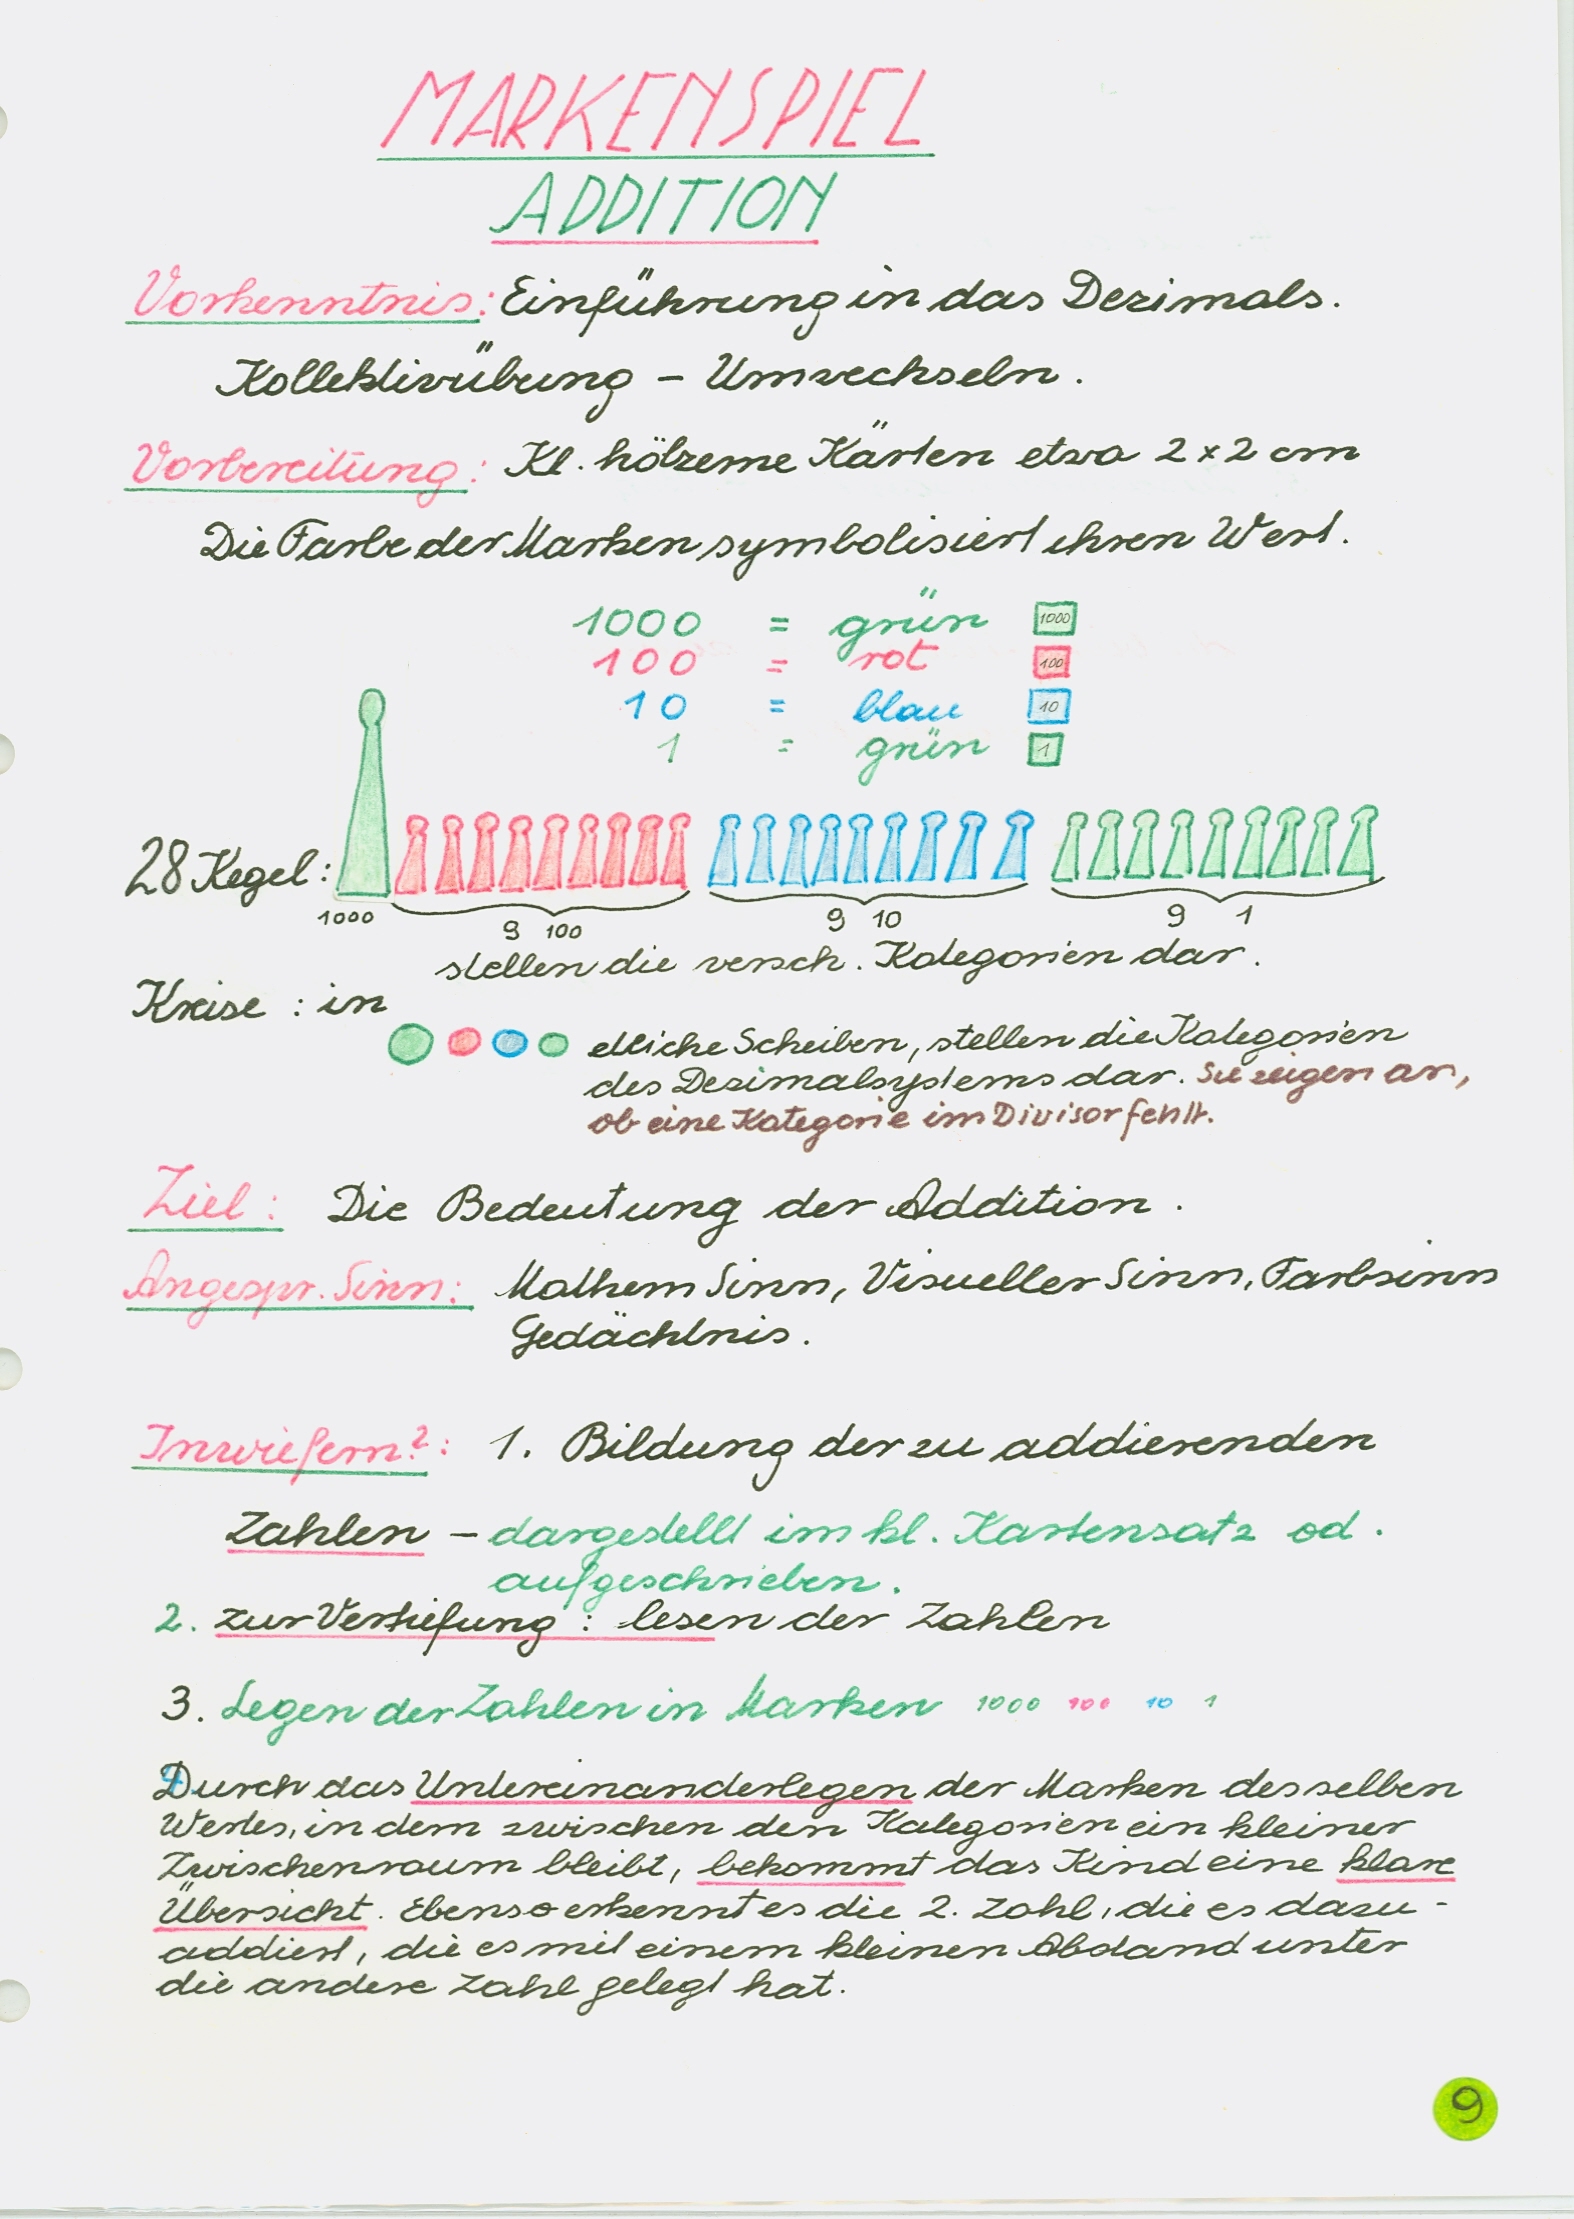 MARKENSPIEL
ADDITION
Vorkenntnis: Einführung in das Dezimals.
Kollektivübung – Umwechseln.
Vorbereitung: Kl. hölzerne Kärten etwa 2 x 2 cm
Die Farbe der Marken symbolisiert ihren Wert.
1000 = grün 1000
100 = rot 100
10 = blau 10
1 = grün 1
28 Kegel:
1000 9 100 9 10 9 1
stellen die versch. Kategorien dar.
Kreise : in
etliche Scheiben, stellen die Kategorien
des Dezimalsystems dar. Sie zeigen an,
ob eine Kategorie im Divisor fehlt.
Ziel: Die Bedeutung der Addition.
Angespr. Sinn: Mathem Sinn, Visueller Sinn, Farbsinn
Gedächtnis.
Inwiefern?: 1. Bildung der zu addierenden
Zahlen – dargestellt im kl. Kartensatz od.
aufgeschrieben.
2. zur Vertiefung: lesen der Zahlen
3. Legen der Zahlen in Marken 1000 100 10 1
Durch das Untereinanderlegen der Marken desselben
Wertes, in dem zwischen den Kategorien ein kleiner
Zwischenraum bleibt, bekommt das Kind eine klare
Übersicht. Ebenso erkennt es die 2. Zahl, die es dazu-
addiert, die es mit einem kleinen Abstand unter
die andere Zahl gelegt hat.
9